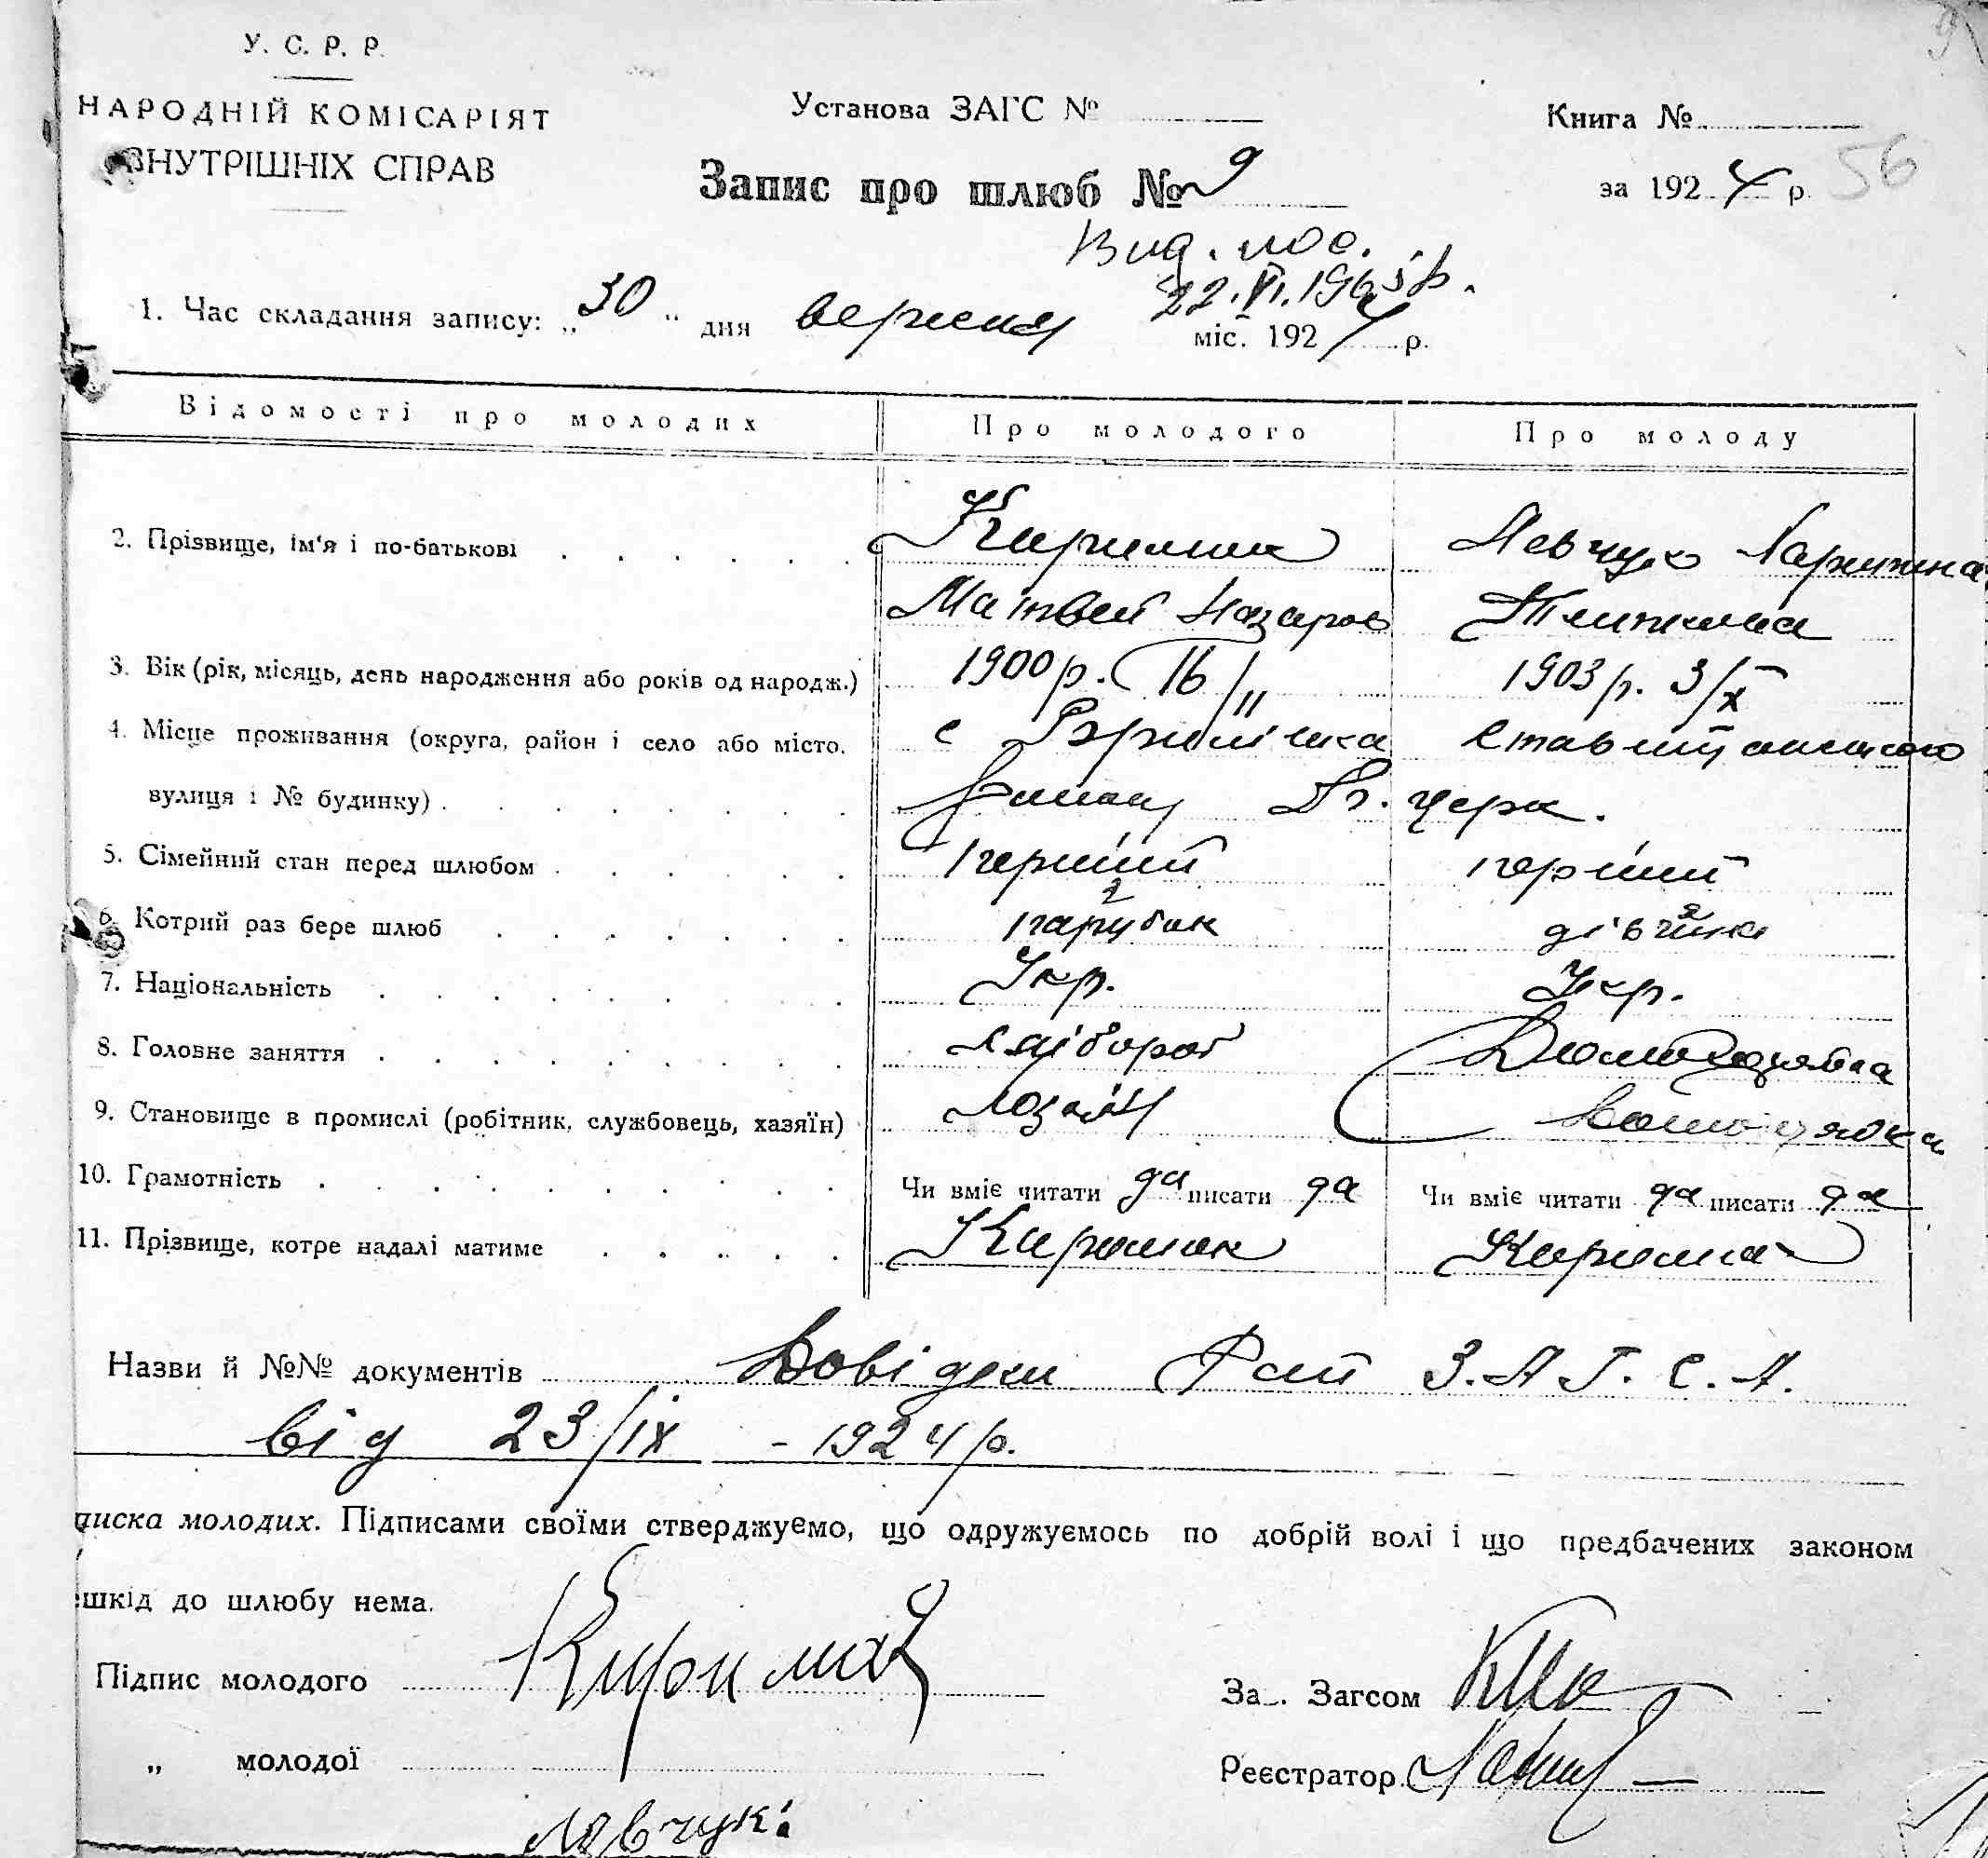 У. С. Р. Р.
НАРОДНІЙ КОМІСАРІЯТ
ВНУТРІШНІХ СПРАВ
Установа ЗАГС №
Книга №
Запис про шлюб № 9
за 1924 р. 56
Вид. пос.
22.VI.1965р.
1. Час складання запису: „30" дня вересня міс. 1924 р.
Відомості про молодих Про молодого Про молоду
2. Прізвище, ім'я і по-батькові Киримик Левчук Харитина
Матвей Назаров
3. Вік (рік, місяць, день народження або років од народж.) 1900 р. 16/II 1903 р. 3/X
4. Місце проживання (округа, район і село або місто, с
вулиця і № будинку) району Бг. церк.
5. Сімейний стан перед шлюбом перший перший
6. Котрий раз бере шлюб парубок дівчина
7. Національність Укр. Укр.
8. Головне заняття хлібороб
9. Становище в промислі (робітник, службовець, хазяїн) Хозяїн
10. Грамотність Чи вміє читати да писати да Чи вміє читати да писати да
11. Прізвище, котре надалі матиме
Назви й №№ документів Довідки Рай З.А.Г.С.А.
від 23/IX - 1924 р.
писка молодих. Підписами своїми стверджуємо, що одружуємось по добрій волі і що предбачених законом
шкід до шлюбу нема.
Підпис молодого
За Загсом
„ молодої
Реєстратор
Левчук